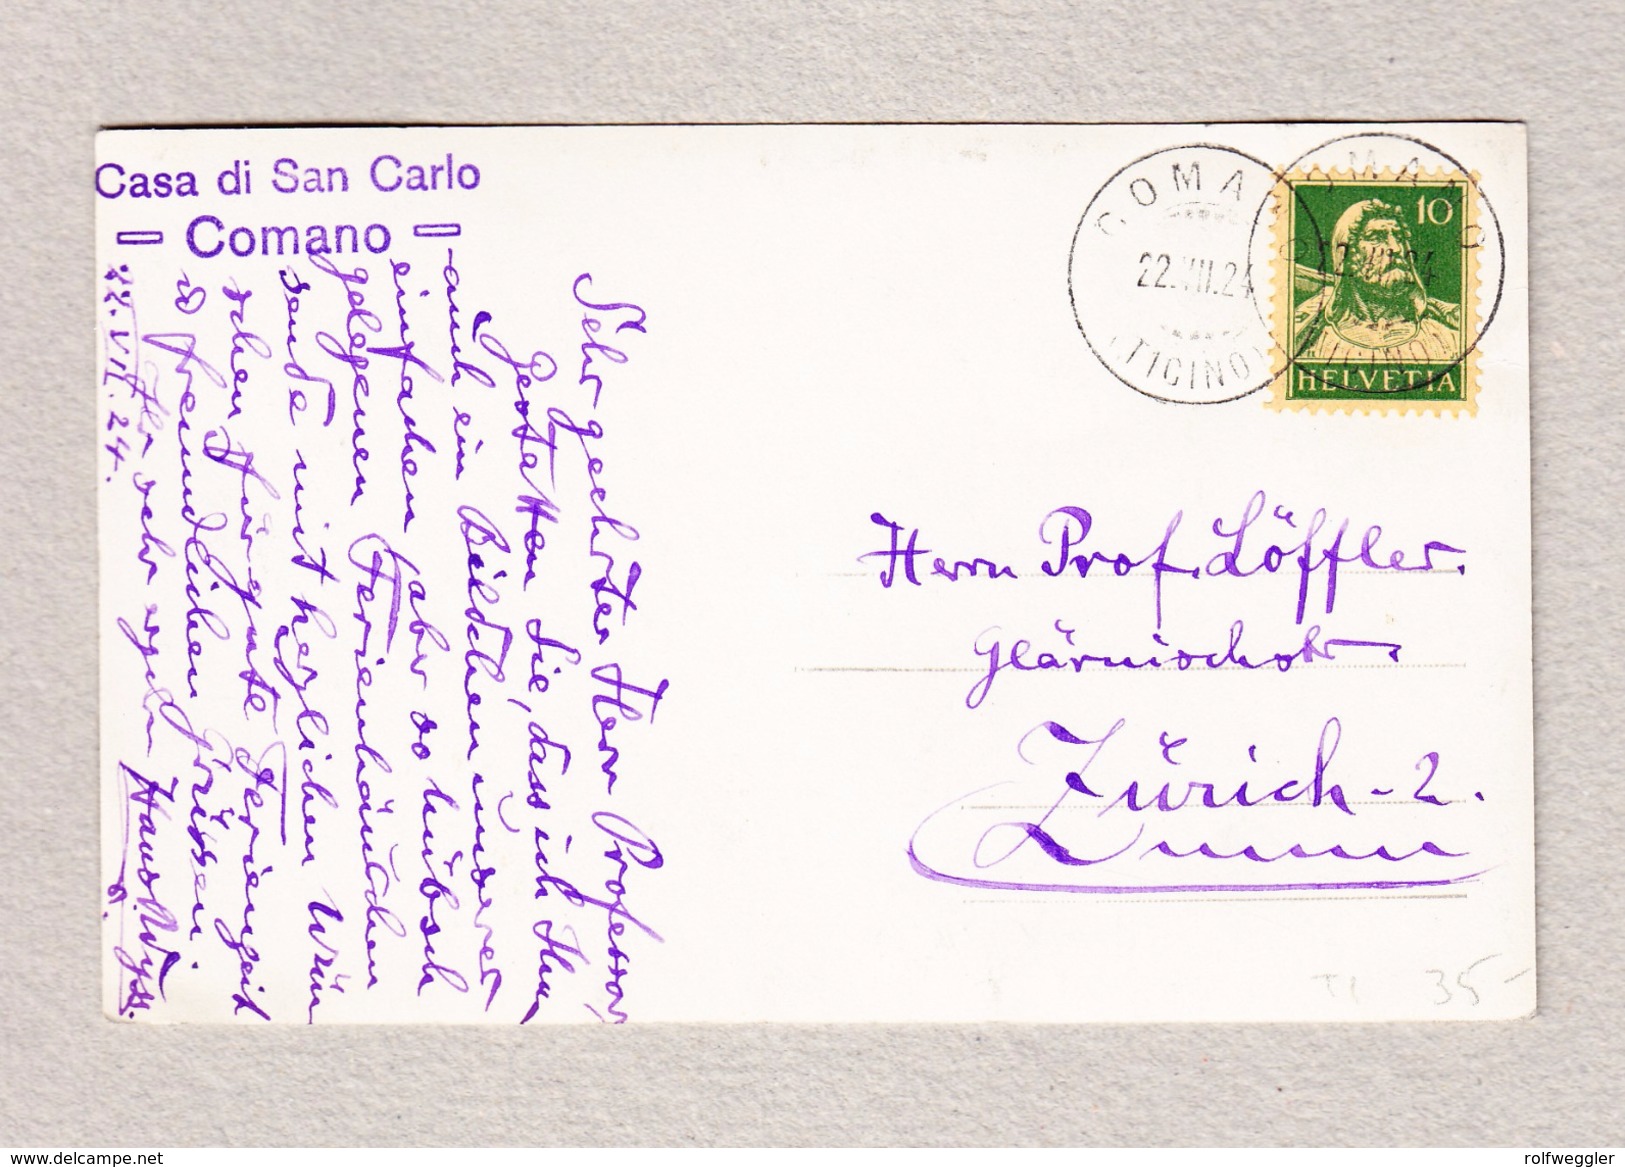 Casa di San Carlo
Comano
COMANO
22.VII.24
(TICINO)
COMANO
22.VII.24
(TICINO)
10
HELVETIA
Sehr geehrter Herr Professor,
Gestatten Sie, dass ich Ihnen
auch ein Bildchen unseres
einfachen, aber so hübsch
gelegenen Ferienhäuschen
sende mit herzlichen Wün
schen für gute Ferienzeit
& freundlichen Grüssen.
Ihr sehr ergebn
22.VII.24.
Hans Wyss.
Herrn Prof. Löffler.
Glärnischstr.
Zürich-2.
TI 35-
www.delcampe.net
rolfweggler